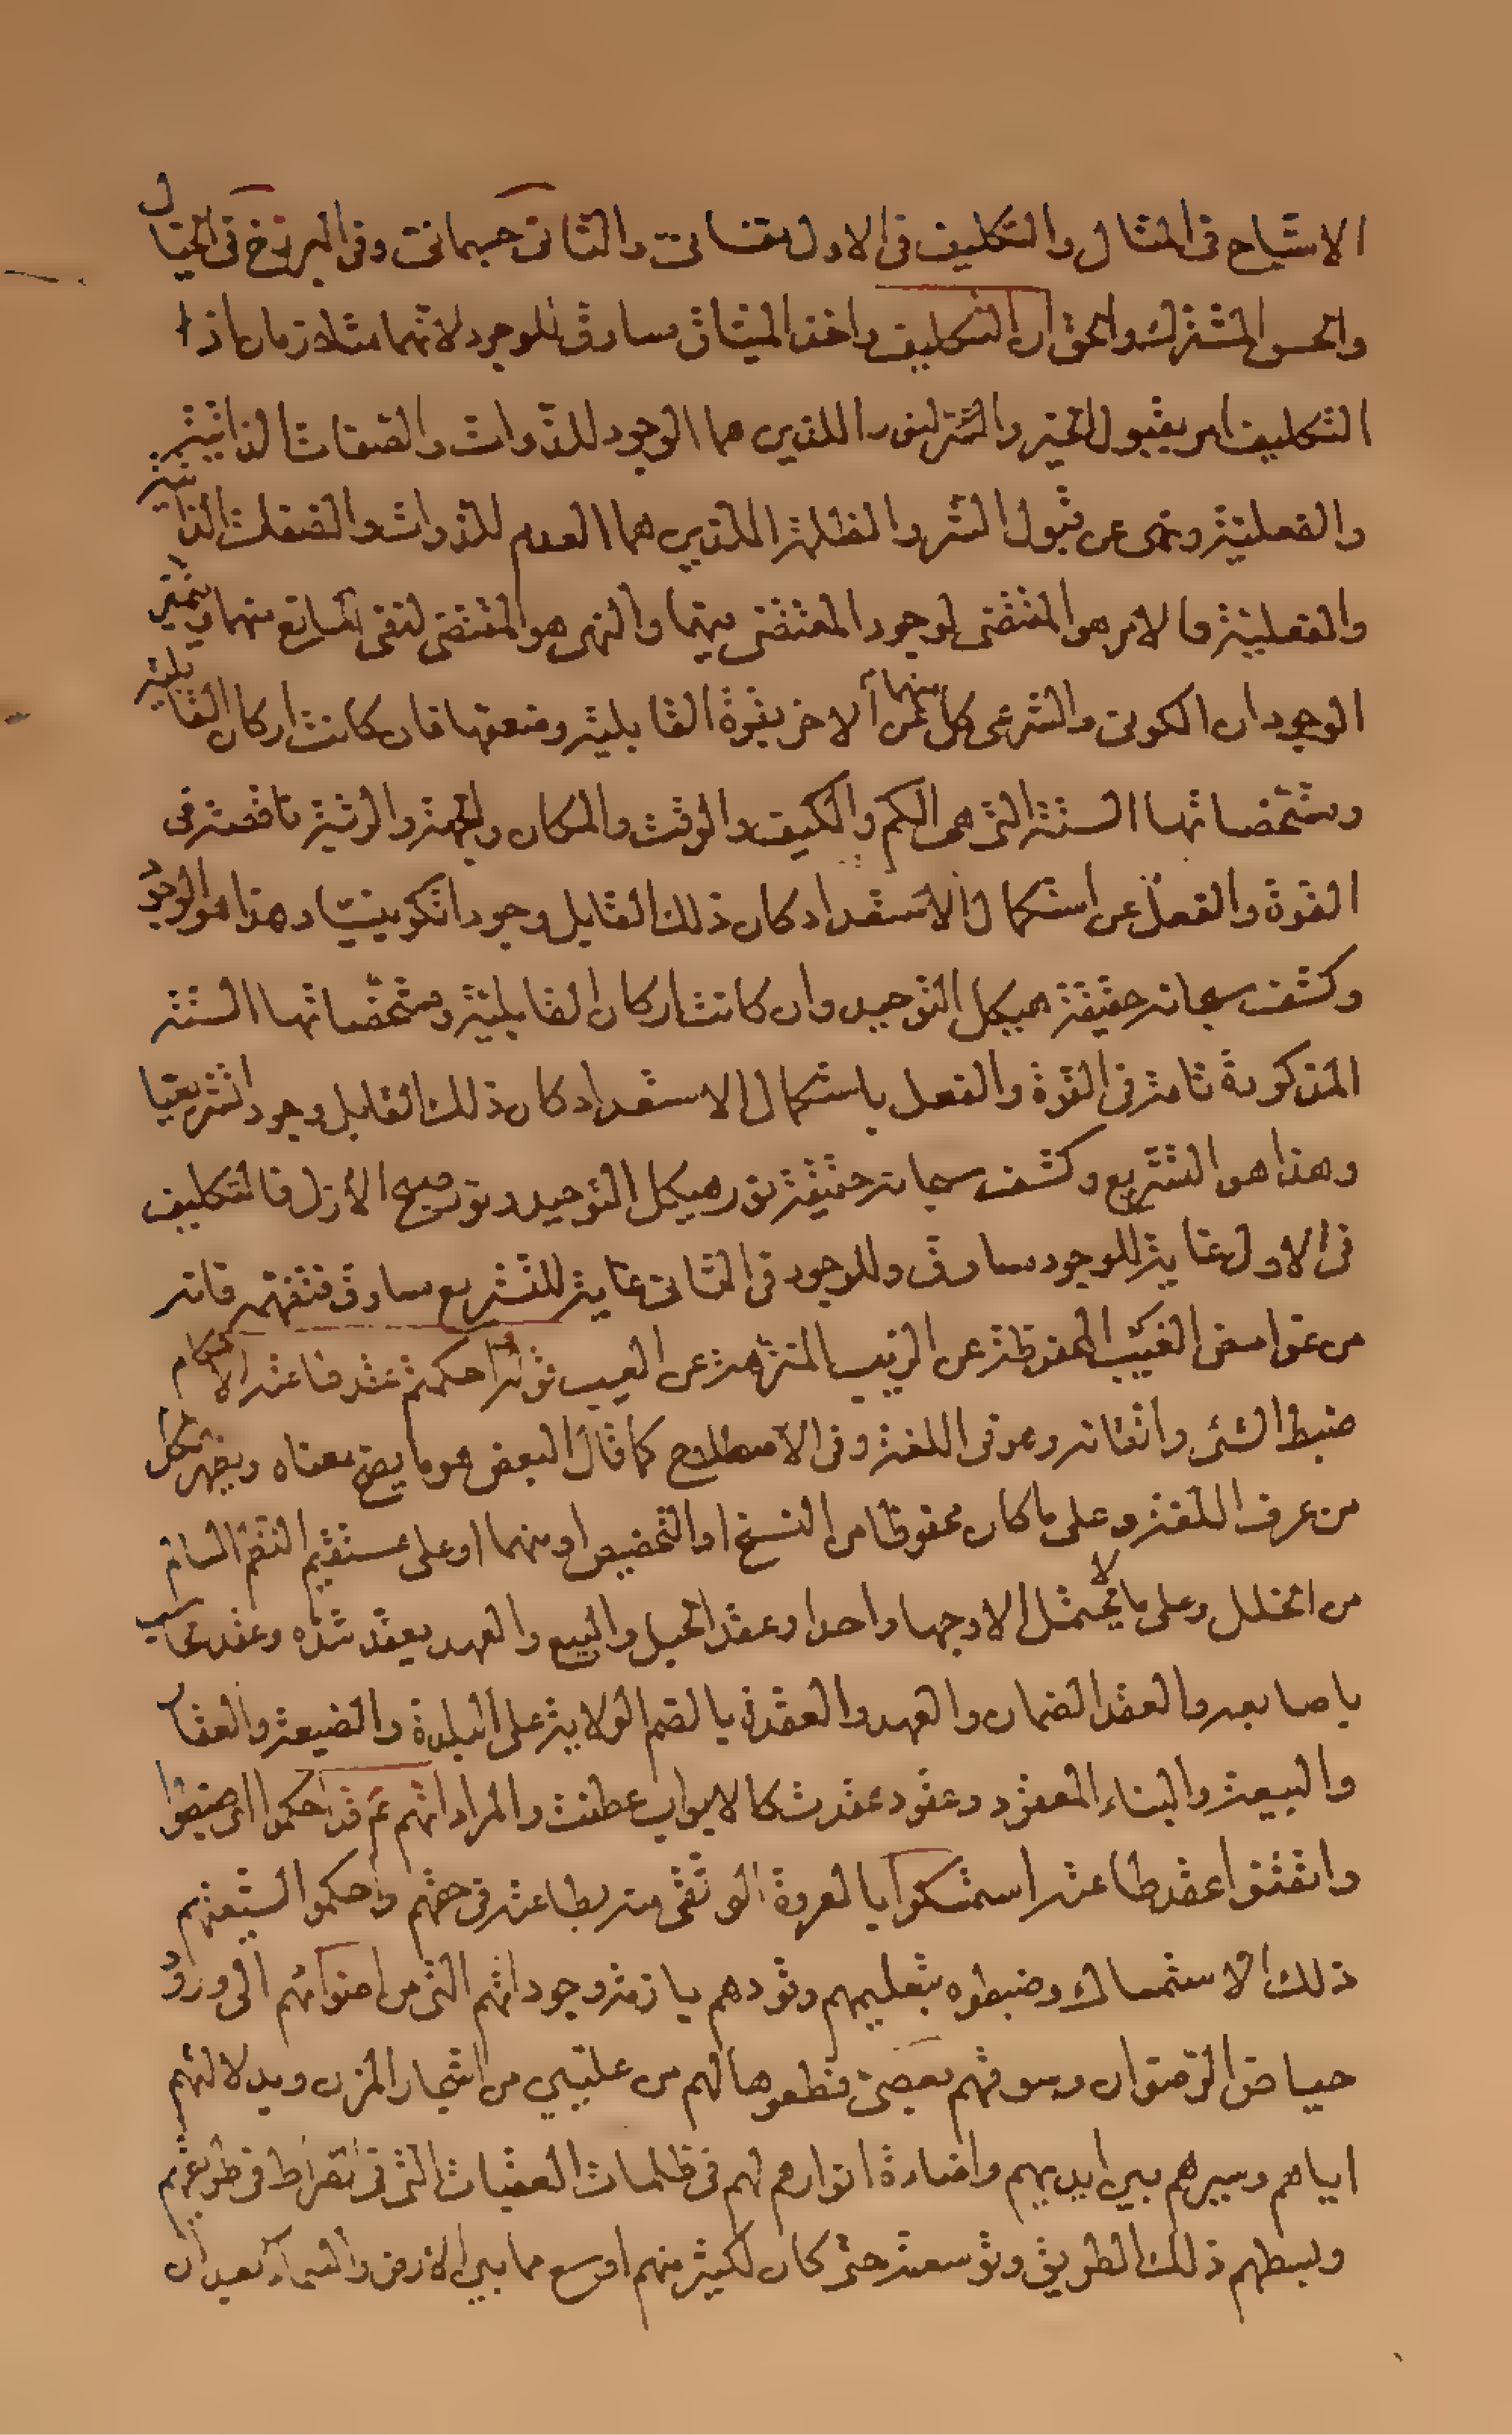 الاشباح فى المثال والتكليف فى الاول نفسانى والثانى جسمانى وفى البرزخ فى الخيال
والحس المشترك والحق ان التكليف واخذ الميثاق مساوق للوجود لانهما متلازمان اذ
التكليف امر بقبول الخير والنور اللذين هما الوجود للذوات والصفات الذاتية
والفعلية ونهى عن قبول الشر والظلمة اللذين هما العدم للذوات والصفات الذاتية
والفعلية فالامر هو المقتضى لوجود المقتضى فيهما والنهى هو المقتضى لنفى المانع منهما ويتميز
الوجودان الكونى والشرعى كل منهما من الاخر بقوة القابلية وضعفها فان كانت اركان القابلية
ومشخصاتها الستة التى هى الكم والكيف والوقت والمكان والجهة والرتبة ناقصة فى
القوة والفعل عن استكمال الاستعداد كان ذلك القابل وجودا تكوينيا وهذا هو الوجود
وكشف سبحاته حقيقة هيكل التوحيد وان كانت اركان القابلية ومشخصاتها الستة
المذكورة تامة فى القوة والفعل باستكمال الاستعداد كان ذلك القابل وجودا تشريعيا
وهذا هو التشريع وكشف سبحاته حقيقة نور هيكل التوحيد ونور صبح الازل فالتكليف
فى الاول غاية للوجود مساوق وللوجود فى الثانى غاية للتشريع مساوق فتفهم فانه
من غوامض الغيب المحفوظة عن الريب المنزهة عن العيب قوله احكمتم عقد طاعته الاحكام
ضبط الشئ واتقانه وهو فى اللغة وفى الاصطلاح كما قال البعض هو ما يصح معناه ويظهر لكل
من عرف اللغة وعلى ما كان محفوظا من النسخ او التخصيص او منهما او على مستقيم النظم السالم
من الخلل وعلى ما لا يحتمل الا وجها واحدا وعقد الحبل والبيع والعهد يعقد شده وعقد حاسب
باصابعه والعقد الضمان والعهد والعقدة بالضم الولاية على البلدة والضيعة والعقار
والبيعة والبناء المعقود وعقود عقدت كالابواب عطفت والمراد انهم ع قد احكموا اى ضبطوا
واتقنوا عقد طاعته استمسكوا بالعروة الوثقى منه بطاعته فى حقهم واحكموا لشيعتهم
ذلك الاستمساك وضبطوه بتعليمهم وقودهم بازمة وجوداتهم التى من اضوائهم الى ورود
حياض الرضوان وسوقهم بعصى قطعوها لهم من عليين من اشجار المزن وبدلالتهم
اياهم وسيرهم بين ايديهم واضاءة انوارهم لهم فى ظلمات العقبات التى فى الصراط فى طريقهم
وبسطهم ذلك الطريق وتوسعته حتى كان لكثير منهم اوسع مما بين الارض والسماء بعد ان